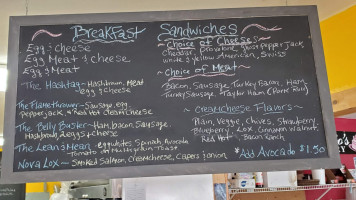 BreakFast Sandwiches
Egg & cheese
Egg Meat & cheese
Egg & Meat
The Hashtag - Hashbrown, Meat, egg & cheese
The Flamethrower - Sausage, egg, Pepperjack, & red hot creamcheese
The Belly Buster - Ham, bacon, Sausage, Hashbrown, 2 eggs & cheese
The Lean & Mean - eggwhites, Spinach, Avocado, Tomato on Multigrain Toast
Nova Lox - Smoked Salmon, creamcheese, Capers, onion
~ Choice of Cheese ~
Cheddar, Provolone, Ghost Pepper Jack,
white & yellow American, Swiss
~ Choice of Meat ~
Bacon, Sausage, Turkey Bacon, Ham,
Turkey Sausage, Taylor Ham (Pork Roll)
~ creamcheese Flavors ~
Plain, Veggie, Chives, Strawberry,
Blueberry, Lox, Cinnamon Walnut,
Red Hot, Bacon Ranch
*Add Avocado $1.50